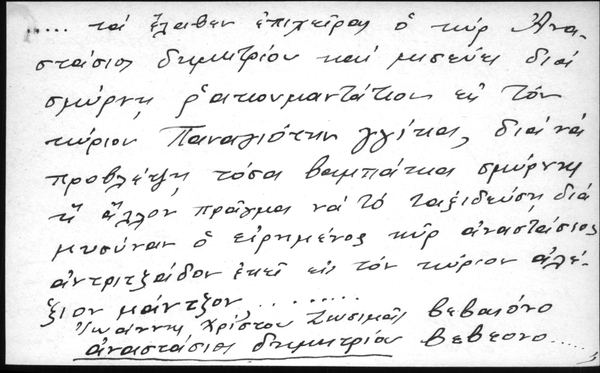 ..... τά ἔλαβεν ἐπιχεῖρας ὁ κύρ Ἀνα-
στάσιος δημητρίου καί μισεύει διά
σμύρνη ῥ̓ακουμαντάτιον εἰς τόν
κύριον Παναγιότην γγίκα, διά νά
προβλέψη τόσα βαμπάκια σμύρνης
ἤ ἄλλον πρᾶγμα νά τό ταξιδεύση διά
μησύναν ὁ εἰρημένος κύρ ἀναστάσιος
ἀντριτζάδον ἐκεῖ εἰς τόν κύριον ἀλέ-
ξιον μάντζον,........
Ἰωάννης Χρίστου Ζωσιμᾶς βεβαιόνο
ἀναστάσιος δημητρίου βεβεονο.....